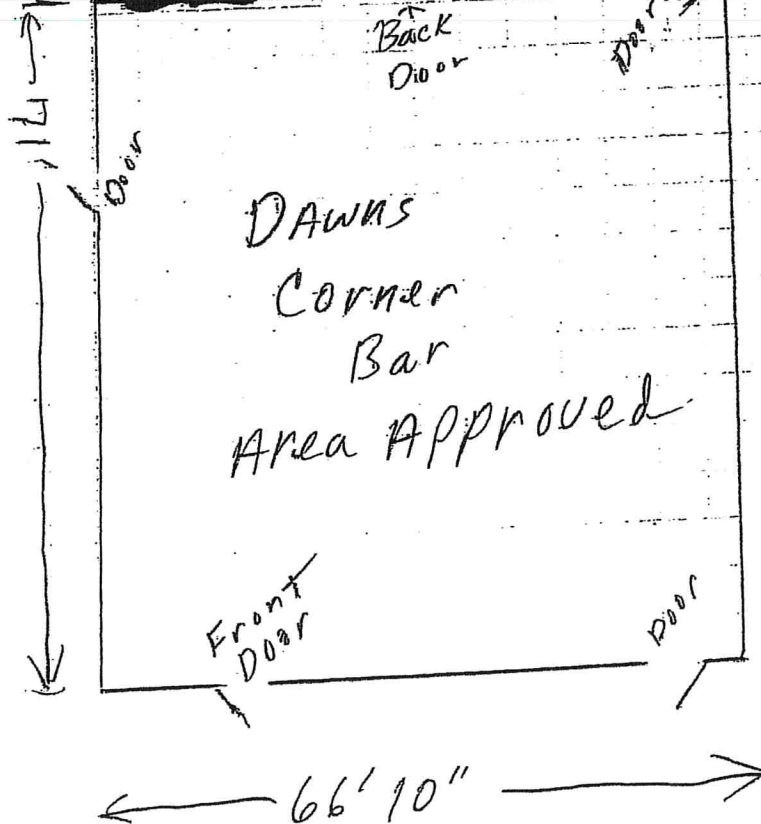 Back
Door
Door
Door
DAWNS
Corner
Bar
Area Approved
Front
Door
Door
66' 10"